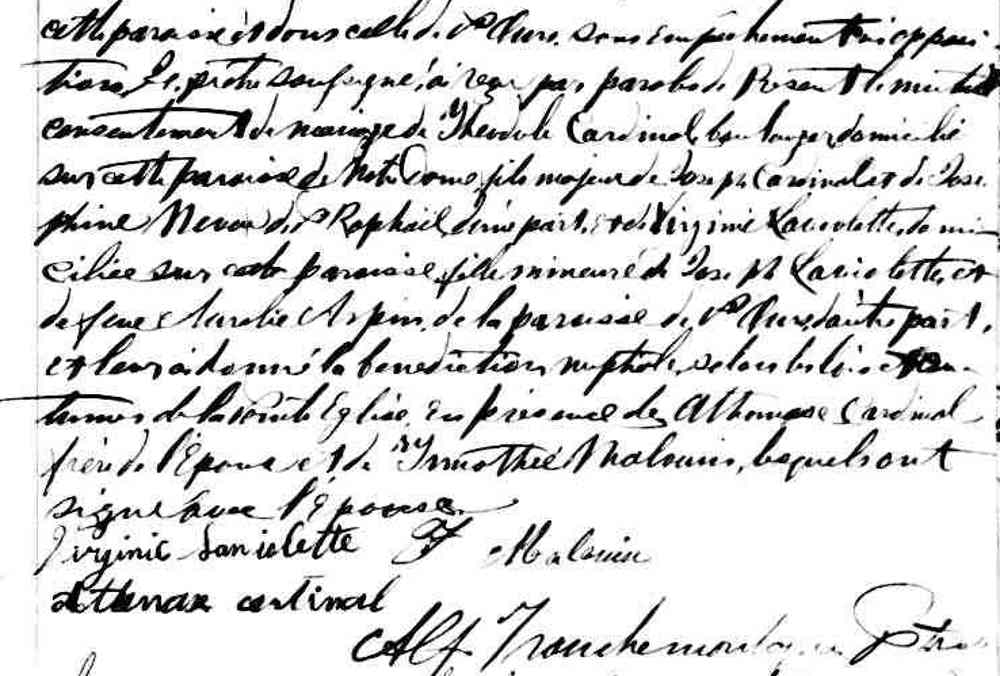 cette paroisse et dans celle de St Cuneg. sans empêchement ni opposi
tion, Je, prêtre soussigné, ai reçu par paroles de Présent le mutuel
consentement de mariage de Théodule Cardinal, boulanger, domicilié
sur cette paroisse de Notre Dame, fils majeur de Joseph Cardinal et de Jose
phine Neveu de St Raphaël, d'une part, et de Virginie Laviolette, domi
ciliée sur cette paroisse, fille mineure de Joseph Laviolette, et
de feue Aurelie Arpin, de la paroisse de St d'autre part,
et leur ai donné la benediction nuptiale, selon les lois et cou
tumes de la sainte Eglise, En présence de Athanase Cardinal
frère de l'Epoux et de Timothée Malouin, lesquels ont
signé avec l'Épouse.
Virginie Laniolette T Malouin
Athanax cartinal
Alf Pstre